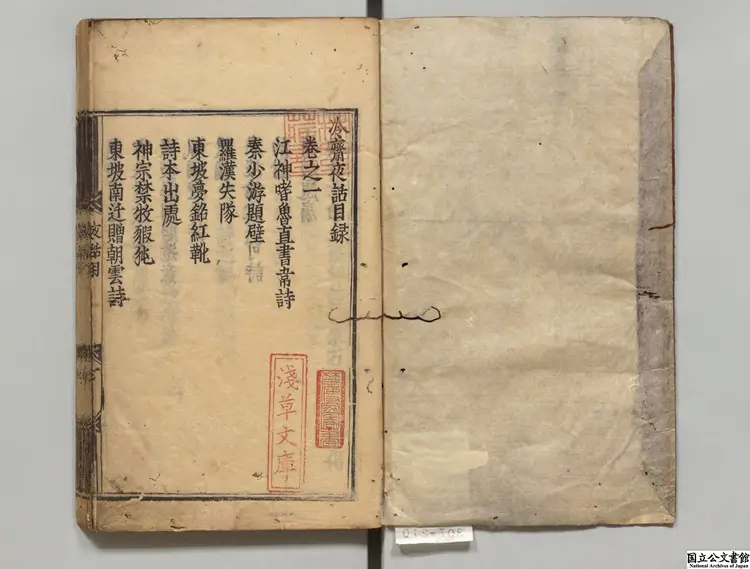 冷齋夜話目録
卷之一
江神嗜魯直書韋詩
秦少游題壁
羅漢失隊
東坡夢銘紅靴
詩本出處
神宗禁牧豭㹠
東坡南迁贈朝雲詩
夜話目
淺草文庫
国立公文書館
National Archives of Japan